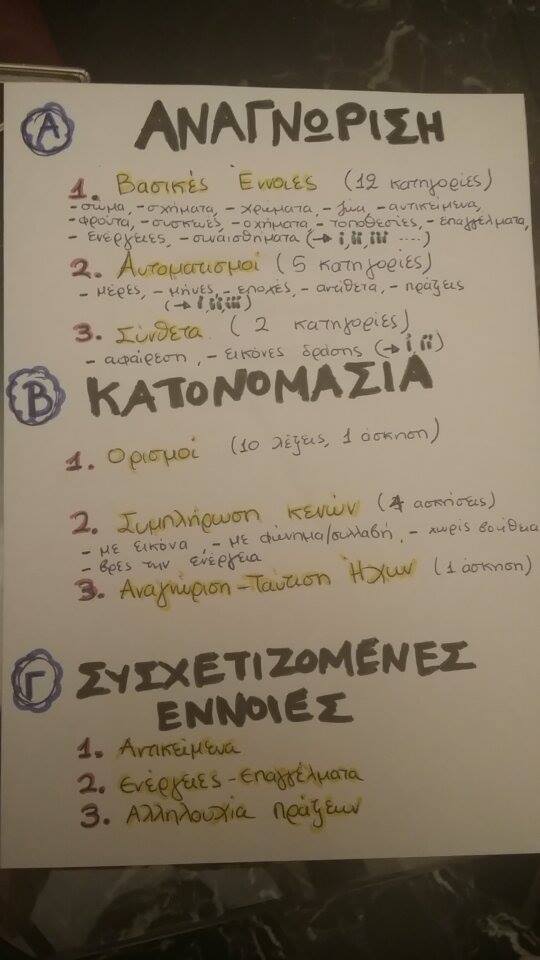 Α ΑΝΑΓΝΩΡΙΣΗ
1. Βασικές Έννοιες (12 κατηγορίες)
- σώμα, - σχήματα, - χρώματα, - ζώα, - αντικείμενα,
- φρούτα, - συσκευές, - οχήματα, - τοποθεσίες, - επαγγέλματα,
- ενέργειες, - συναισθήματα (→ i, ii, iii ....)
2. Αυτοματισμοί (5 κατηγορίες)
- μέρες, - μήνες, - εποχές, - αντίθετα, - πράξεις
(→ i, ii, iii)
3. Σύνθετα (2 κατηγορίες)
- αφαίρεση, - εικόνες δράσης (→ i, ii)
Β ΚΑΤΟΝΟΜΑΣΙΑ
1. Ορισμοί (10 λέξεις, 1 άσκηση)
2. Συμπλήρωση κενών (4 ασκήσεις)
- με εικόνα, - με φώνημα/συλλαβή, - χωρίς βοήθεια
- βρες την ενέργεια
3. Αναγνώριση - Ταύτιση Ήχων (1 άσκηση)
Γ ΣΥΣΧΕΤΙΖΟΜΕΝΕΣ
ΕΝΝΟΙΕΣ
1. Αντικείμενα
2. Ενέργειες - Επαγγέλματα
3. Αλληλουχία Πράξεων